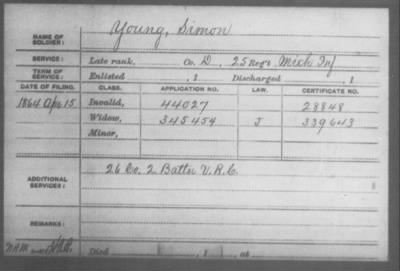 NAME OF SOLDIER: Young, Simon
SERVICE: Late rank, Co. D, 25 Reg't Mich Inf
TERM OF SERVICE: Enlisted , 1 Discharged , 1
DATE OF FILING. CLASS. APPLICATION NO. LAW. CERTIFICATE NO.
1864 Apr 15 Invalid, 44027 28848
Widow, 345454 J 339643
Minor,
ADDITIONAL SERVICES: 26 Co. 2 Battn V.R.C.
REMARKS:
Died , 1 , at